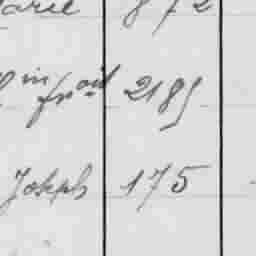 arie 872
in frois 2185
Joseph 175